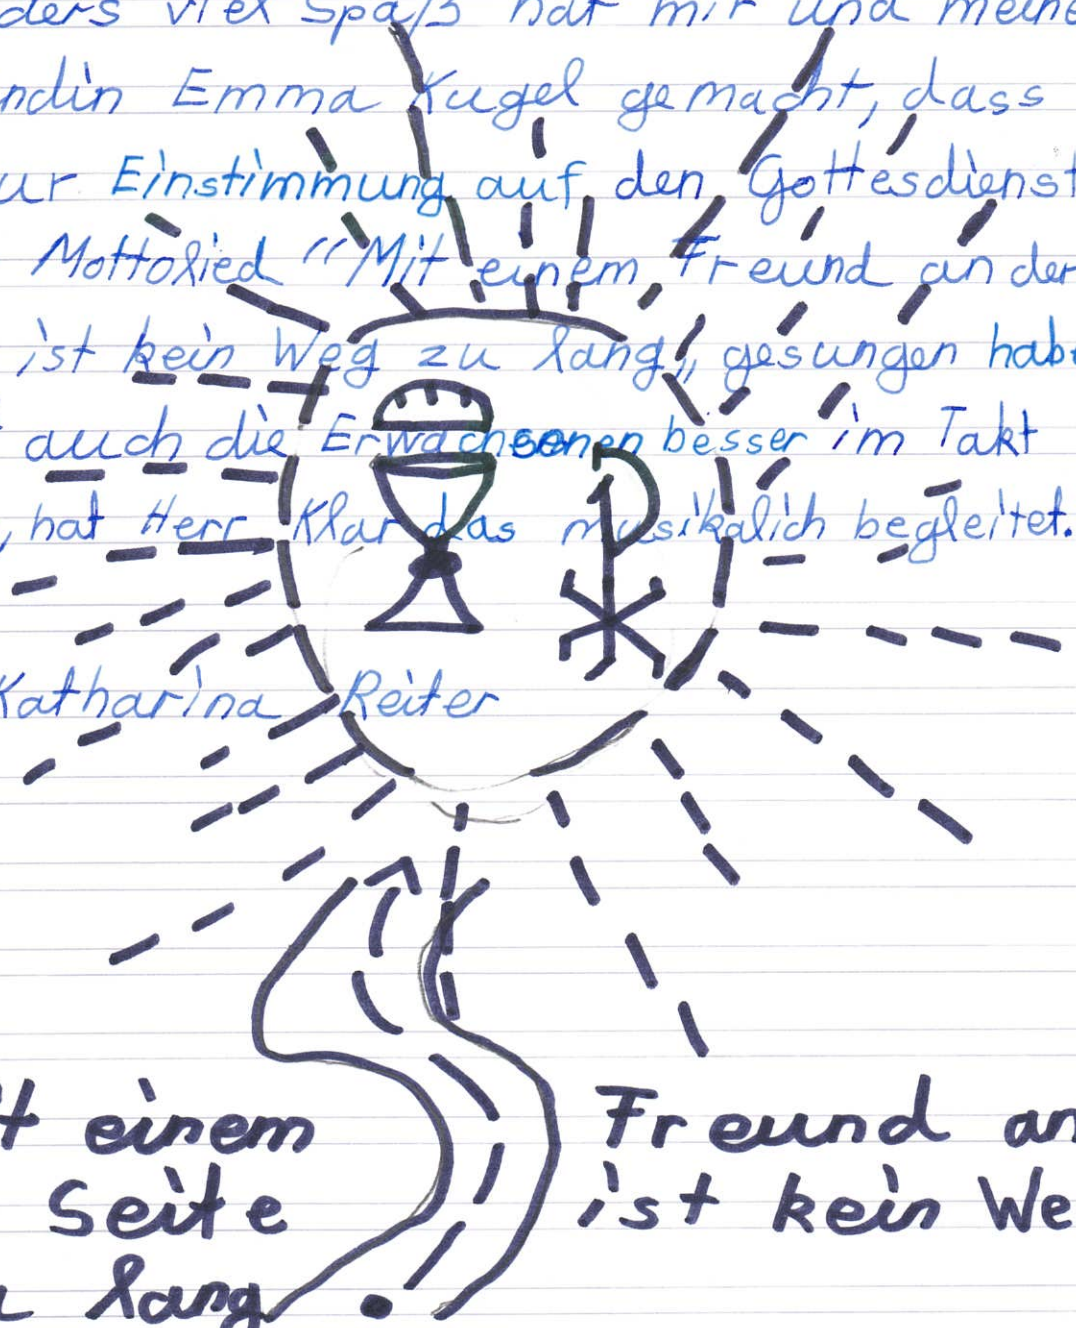 ders viel Spaß hat mir und meine
ndin Emma Kugel gemacht, dass
ur Einstimmung auf den Gottesdienst
Mottolied "Mit einem Freund an der
ist kein Weg zu lang" gesungen habe
auch die Erwachsenen besser im Takt
, hat Herr Klar das musikalich begleitet.
Katharina Reiter
t einem Freund an
Seite ist kein We
u lang